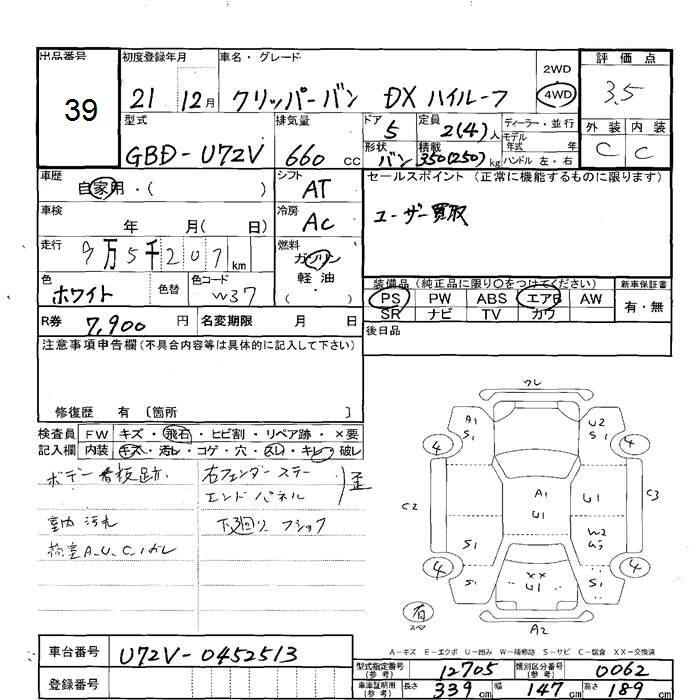 出品番号
39
初度登録年月
21 12月
車名・グレード
クリッパーバン DX ハイルーフ
2WD
4WD
評価点
3.5
型式
GBD-U72V
排気量
660 cc
ドア
5
定員
2(4)人
ディーラー・並行
モデル年式 年
ハンドル 左・右
形状
バン
積載
350(250)kg
外装 内装
C C
車歴
自家用・( )
シフト
AT
セールスポイント (正常に機能するものに限ります)
ユーザー買取
車検
年 月( 日)
冷房
AC
走行
9万5千207km
燃料
ガソリン
軽油
( )
色
ホワイト
色替
色コード
W37
装備品(純正品に限り○をつけてください)
PS PW ABS エアB AW
SR ナビ TV カワ
新車保証書
有・無
R券 7,900円
名変期限 月 日
後日品
注意事項申告欄(不具合内容等は具体的に記入して下さい)
修復歴 有 〔箇所 〕
検査員記入欄
FW キズ・飛石・ヒビ割・リペア跡・×要
内装 キズ・汚レ・コゲ・穴・スレ・キレ・破レ
ボデー 看板跡
右フェンダーステー
エンドパネル
歪
室内 汚れ
下廻り フショク
荷室 A.U.C.1カレ
ワレ
A1
S1
U2
S1
4
4
C2
C3
A1
U1
U1
S1
W2
4
4
S1
S1
XX
U1
有
スペア
A2
A-キズ E-エクボ U-凹み W-補修跡 S-サビ C-腐食 XX-交換済
車台番号
U72V-0452513
登録番号
型式指定番号(参考)
12705
類別区分番号(参考)
0062
車庫証明用(参考)
長さ 339cm
幅 147cm
高さ 189cm